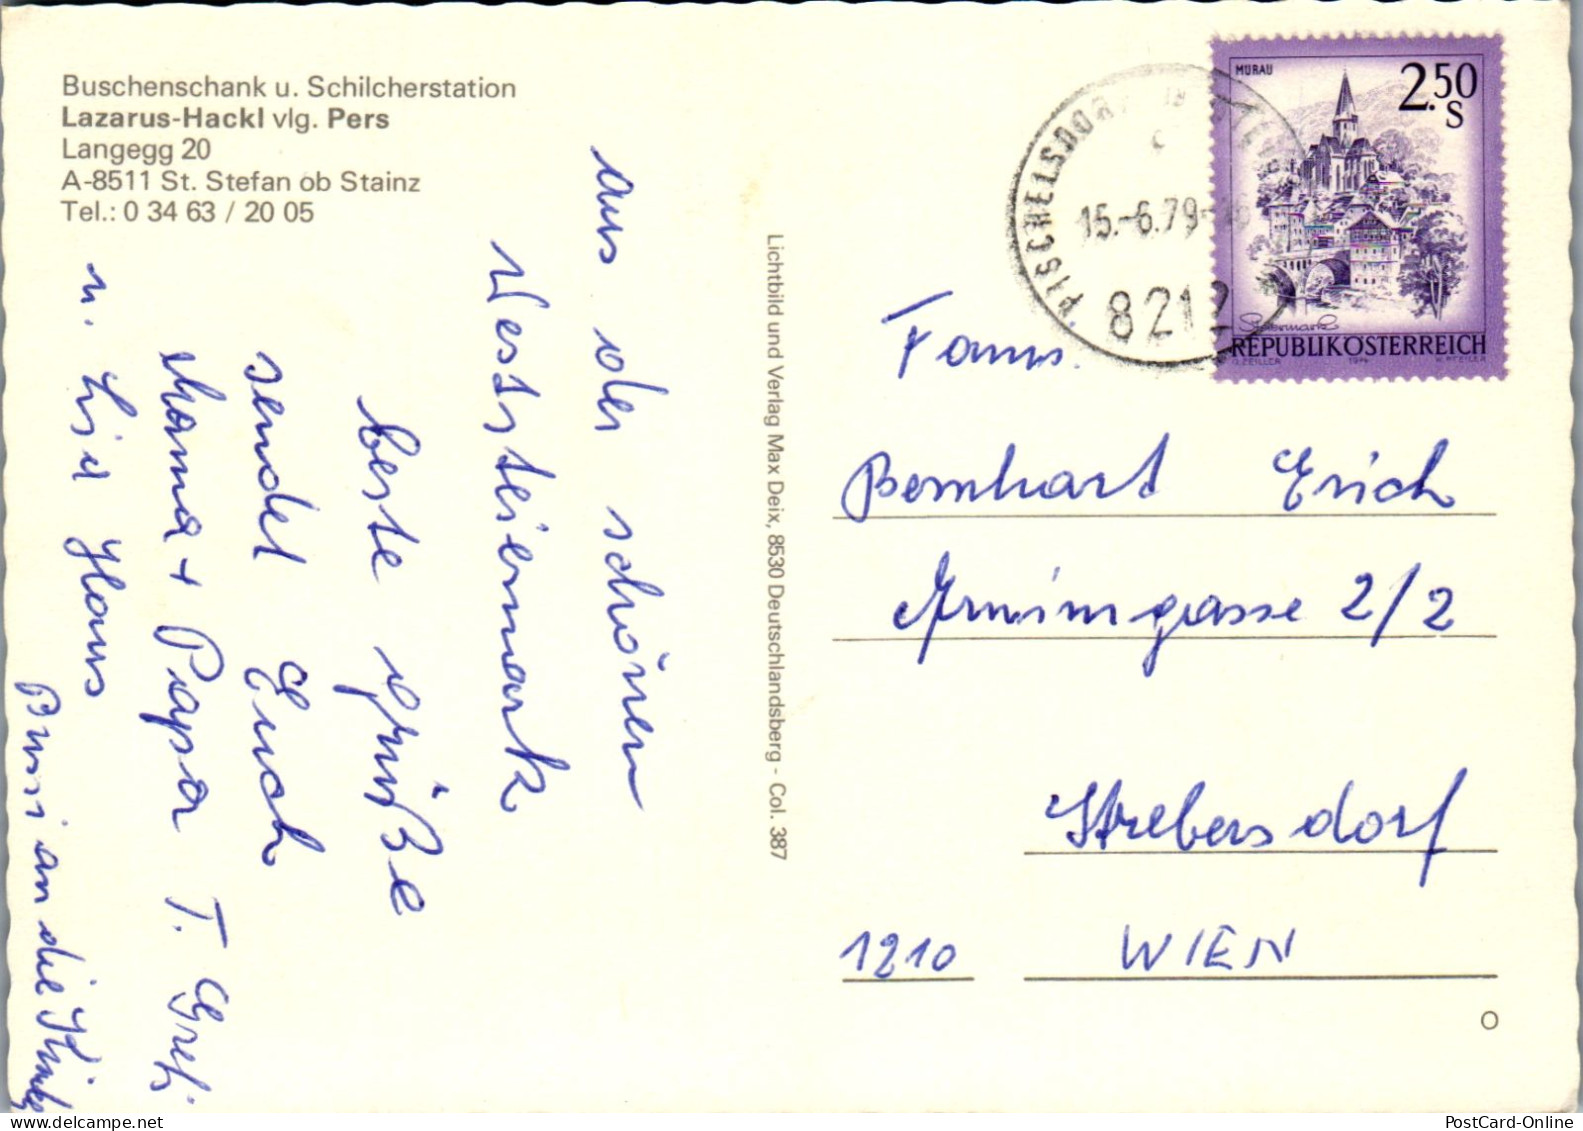 Buschenschank u. Schilcherstation
Lazarus-Hackl vlg. Pers
Langegg 20
A-8511 St. Stefan ob Stainz
Tel.: 0 34 63 / 20 05
aus der schönen
Weststeiermark
beste Grüße
sendet Euch
Mama + Papa T. Gref
u. Lisi Hans
Bussi an die
Lichtbild und Verlag Max Deix, 8530 Deutschlandsberg - Col. 387
PISCHELSDORF
15.-6.79
8212
MURAU
2.50
S
Steiermark
REPUBLIK ÖSTERREICH
O. ZEILLER 1974 W. PFEILER
Fam.
Bernhart Erich
Arnimgasse 2/2
Strebersdorf
1210 WIEN
O